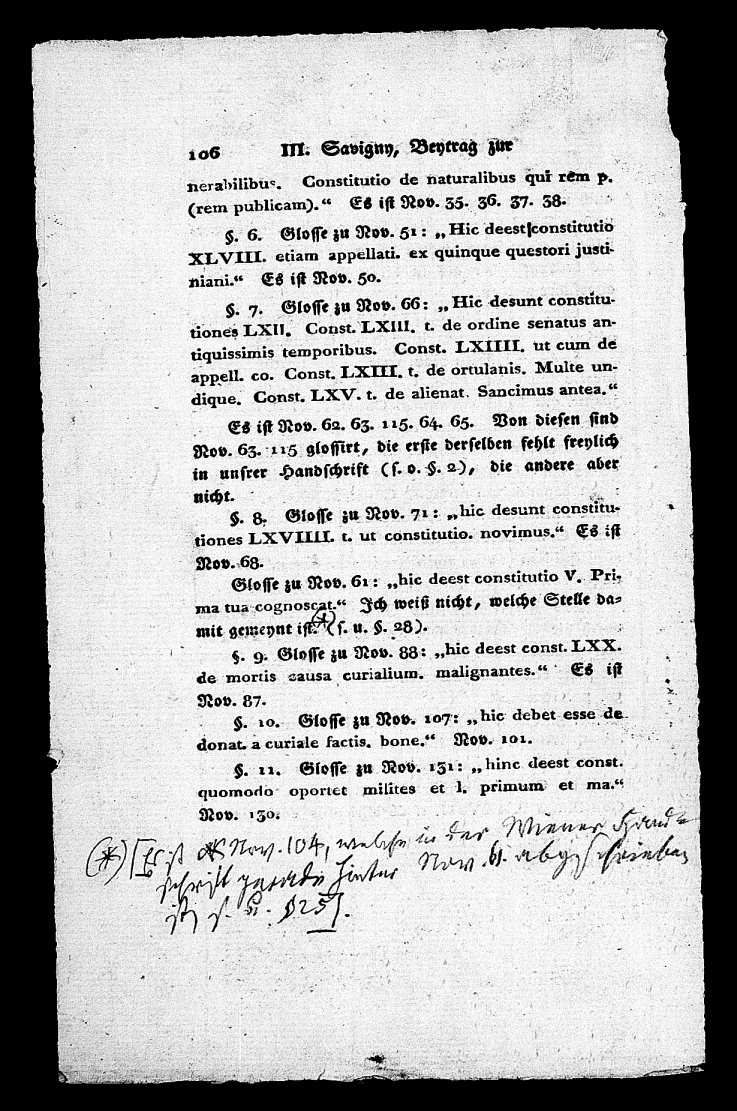 106 III. Savigny, Beytrag zur
nerabilibus. Constitutio de naturalibus qui rem p.
(rem publicam).“ Es ist Nov. 35. 36. 37. 38.
§. 6. Glosse zu Nov. 51: „Hic deest constitutio
XLVIII. etiam appellati. ex quinque questori justi-
niani.“ Es ist Nov. 50.
§. 7. Glosse zu Nov. 66: „Hic desunt constitu-
tiones LXII. Const. LXIII. t. de ordine senatus an-
tiquissimis temporibus. Const. LXIIII. ut cum de
appell. co. Const. LXIII. t. de ortulanis. Multe un-
dique. Const. LXV. t. de alienat. Sancimus antea.“
Es ist Nov. 62. 63. 115. 64. 65. Von diesen sind
Nov. 63. 115 glossirt, die erste derselben fehlt freylich
in unsrer Handschrift (s. o. §. 2), die andere aber
nicht.
§. 8. Glosse zu Nov. 71: „hic desunt constitu-
tiones LXVIIII. t. ut constitutio. novimus.“ Es ist
Nov. 68.
Glosse zu Nov. 61: „hic deest constitutio V. Pri-
ma tua cognoscat.“ Ich weiß nicht, welche Stelle da-
mit gemeynt ist. (*) (s. u. §. 28).
§. 9. Glosse zu Nov. 88: „hic deest const. LXX.
de mortis causa curialium. malignantes.“ Es ist
Nov. 87.
§. 10. Glosse zu Nov. 107: „hic debet esse de
donat. a curiale factis. bone.“ Nov. 101.
§. 11. Glosse zu Nov. 131: „hinc deest const.
quomodo oportet milites et l. primum et ma.“
Nov. 130.
(*) [Es ist Nov. 104, welche in der Wiener Hand-
schrift gerade hinter Nov. 61. abgeschrieben
ist, s. u. §25].